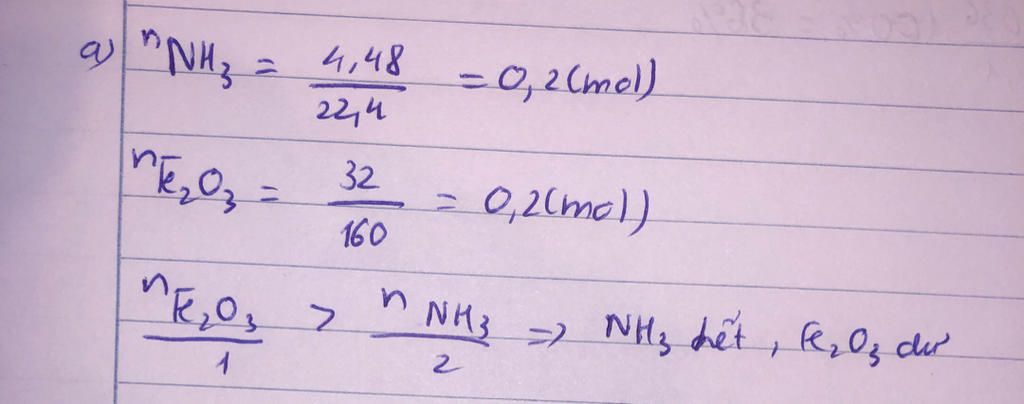 a) nNH₃ = 4,48/22,4 = 0,2(mol)
nFe₂O₃ = 32/160 = 0,2(mol)
nFe₂O₃/1 > nNH₃/2 => NH₃ hết, Fe₂O₃ dư